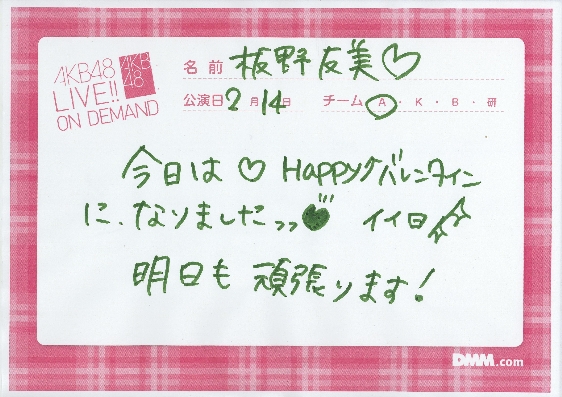 AKB48
LIVE!!
ON DEMAND
AKB
48
名前 板野友美♡
公演日 2月14日 チーム A・K・B・研
今日は♡Happyバレンタイン
に、なりましたっっ イイ日
明日も頑張ります!
DMM.com